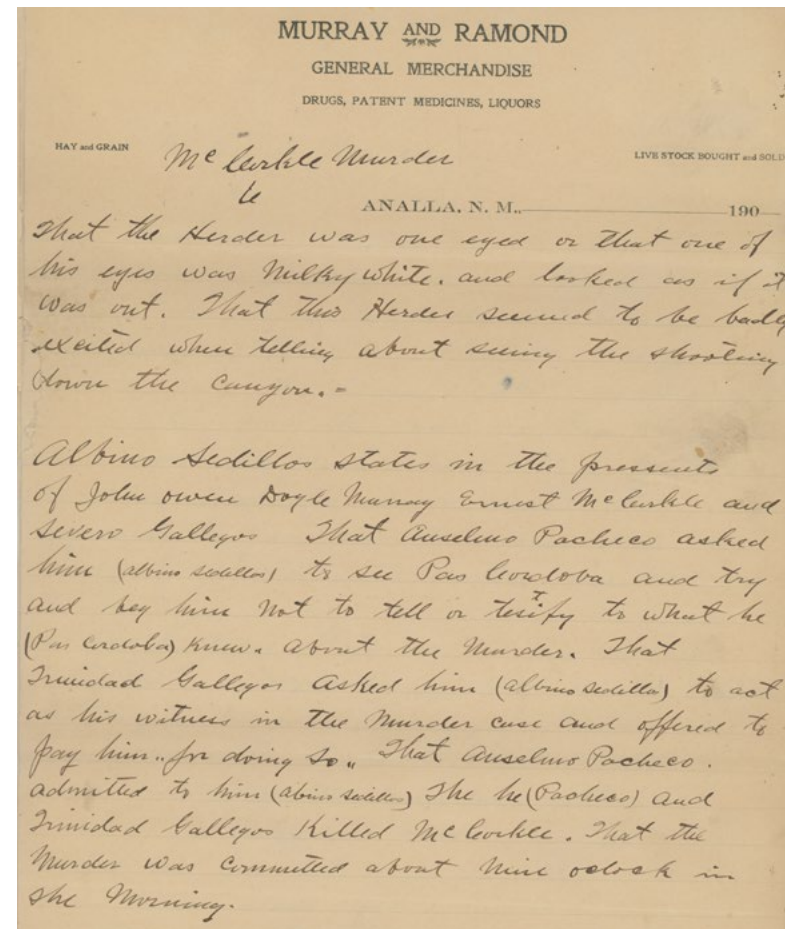 MURRAY AND RAMOND
GENERAL MERCHANDISE
DRUGS, PATENT MEDICINES, LIQUORS
HAY and GRAIN
LIVE STOCK BOUGHT and SOLD
Mc Corkle Murder
ANALLA, N. M., 190
That the Herder was one eyed or that one of
his eyes was Milky white. and looked as if it
was out. That this Herder seemed to be badly
excited when telling about seeing the shooting
down the Canyon. =
Albino Sedillos states in the pressents
of John Owen Doyle Murray Ernest McCorkle and
Severo Gallegos That Anselmo Pacheco asked
him (albino sedillos) to see Pas Cordoba and try
and beg him Not to tell or testify to what he
(Pas Cordoba) Knew. about the Murder. That
Trinidad Gallegos Asked him (albino Sedillos) to act
as his witness in the Murder case and offered to
pay him.. for doing so.. That Anselmo Pacheco.
admitted to him (abino Sedillos) The he (Pacheco) and
Trinidad Gallegos Killed McCorkle. That the
Murder was Committed about Nine oclock in
she Morning.